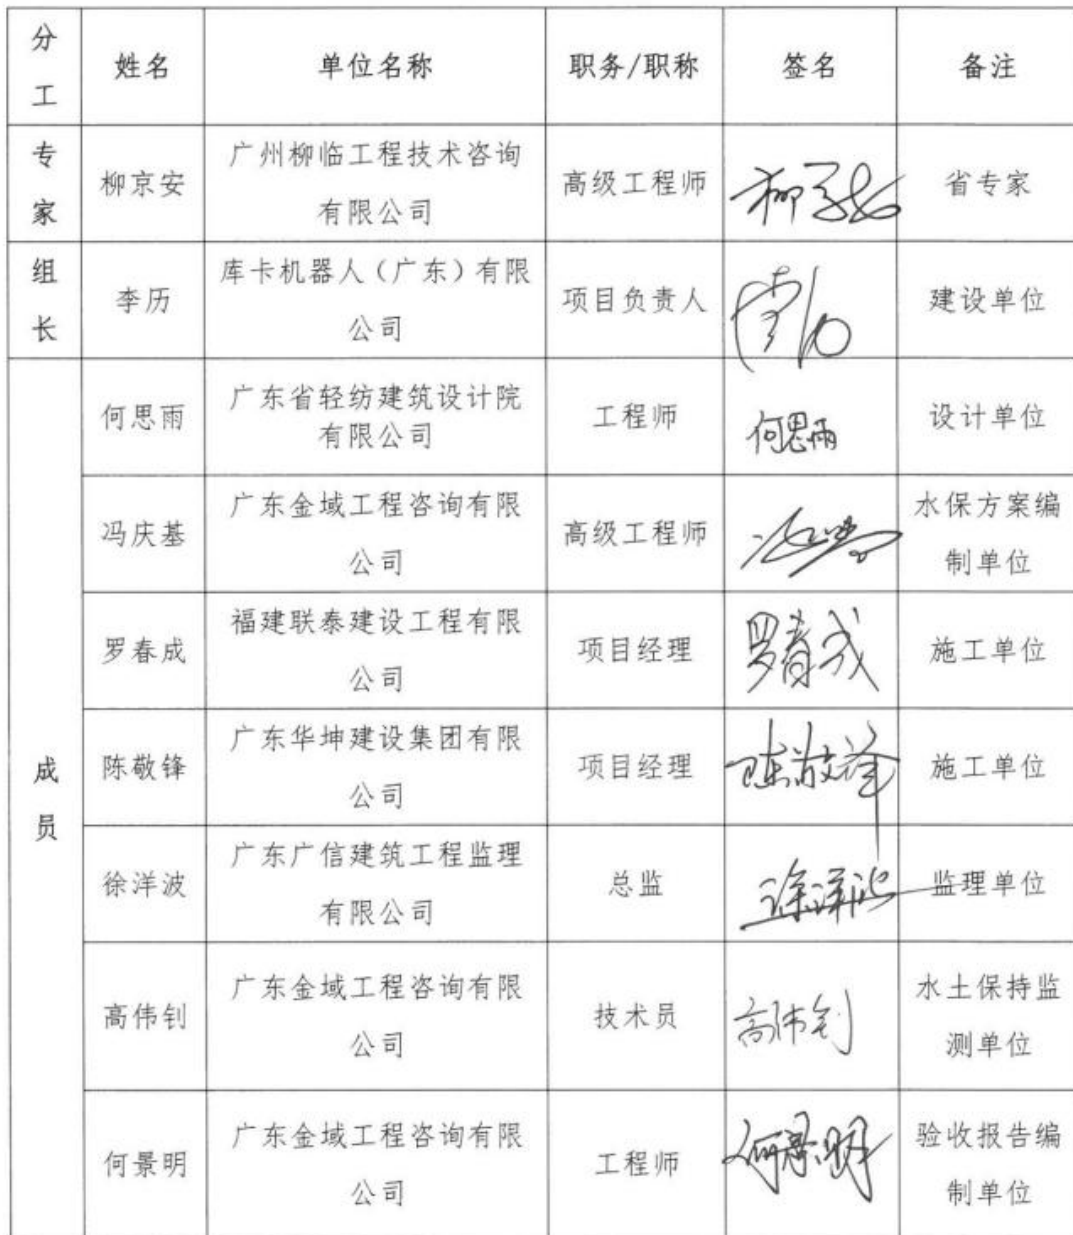 分工 姓名 单位名称 职务/职称 签名 备注
专家 柳京安 广州柳临工程技术咨询有限公司 高级工程师 省专家
组长 李历 库卡机器人（广东）有限公司 项目负责人 建设单位
成员 何思雨 广东省轻纺建筑设计院有限公司 工程师 何思雨 设计单位
冯庆基 广东金域工程咨询有限公司 高级工程师 水保方案编制单位
罗春成 福建联泰建设工程有限公司 项目经理 罗春成 施工单位
陈敬锋 广东华坤建设集团有限公司 项目经理 陈敬锋 施工单位
徐洋波 广东广信建筑工程监理有限公司 总监 徐洋波 监理单位
高伟钊 广东金域工程咨询有限公司 技术员 高伟钊 水土保持监测单位
何景明 广东金域工程咨询有限公司 工程师 何景明 验收报告编制单位